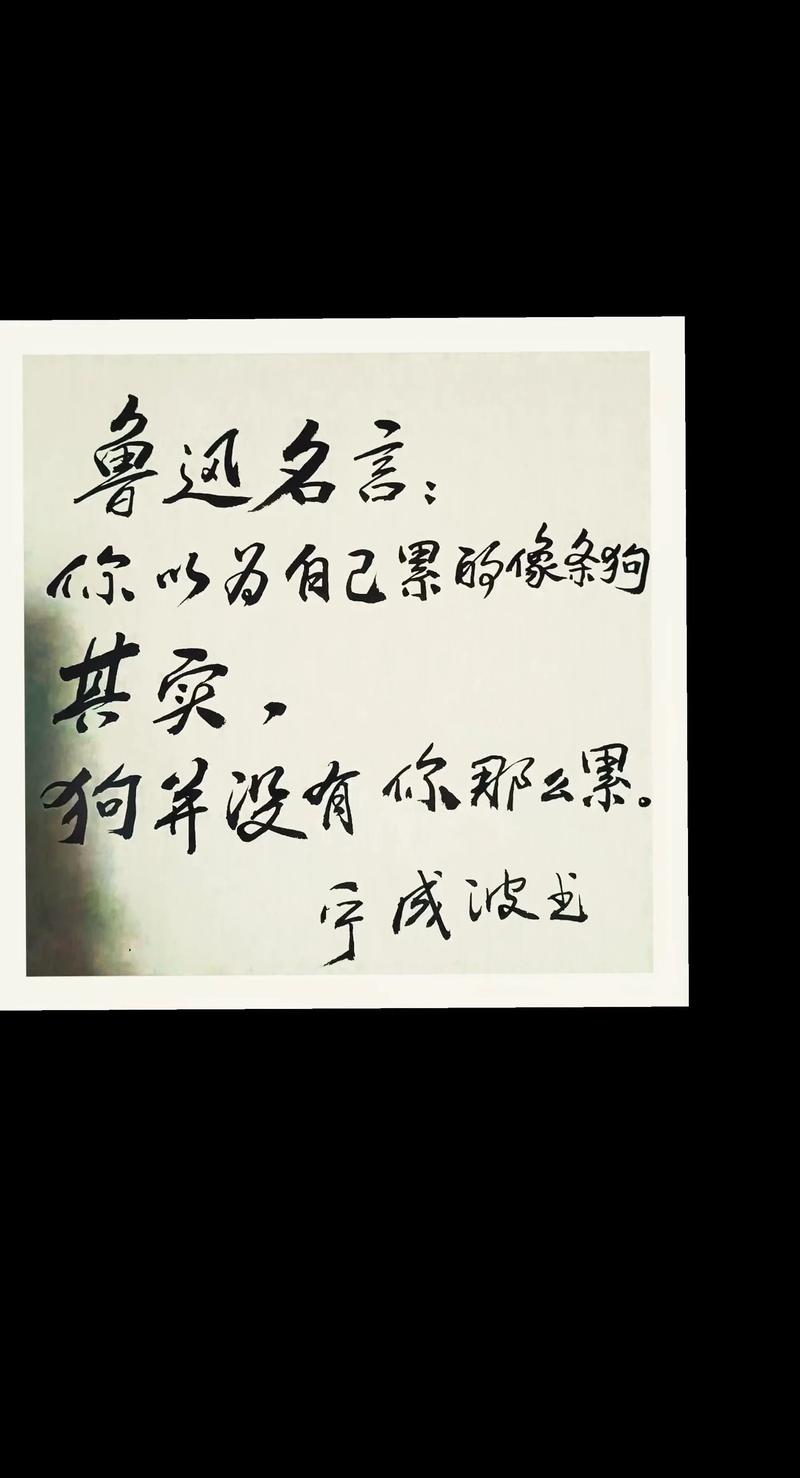 鲁迅名言：
你以为自己累的像条狗
其实，
狗并没有你那么累。
宁成波书